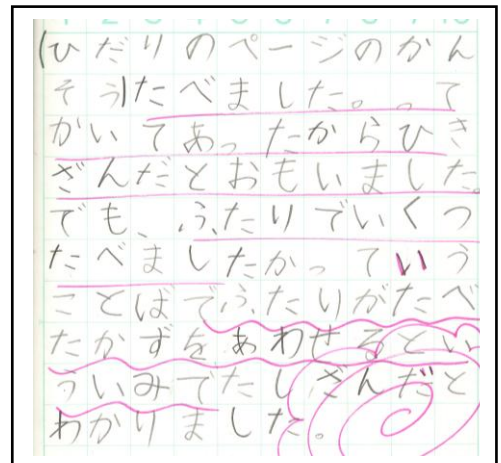 (ひだりのページのかん
そう)たべました。って
かいてあったからひき
ざんだとおもいました。
でも、ふたりでいくつ
たべましたかっていう
ことばでふたりがたべ
たかずをあわせるとい
ういみでたしざんだと
わかりました。